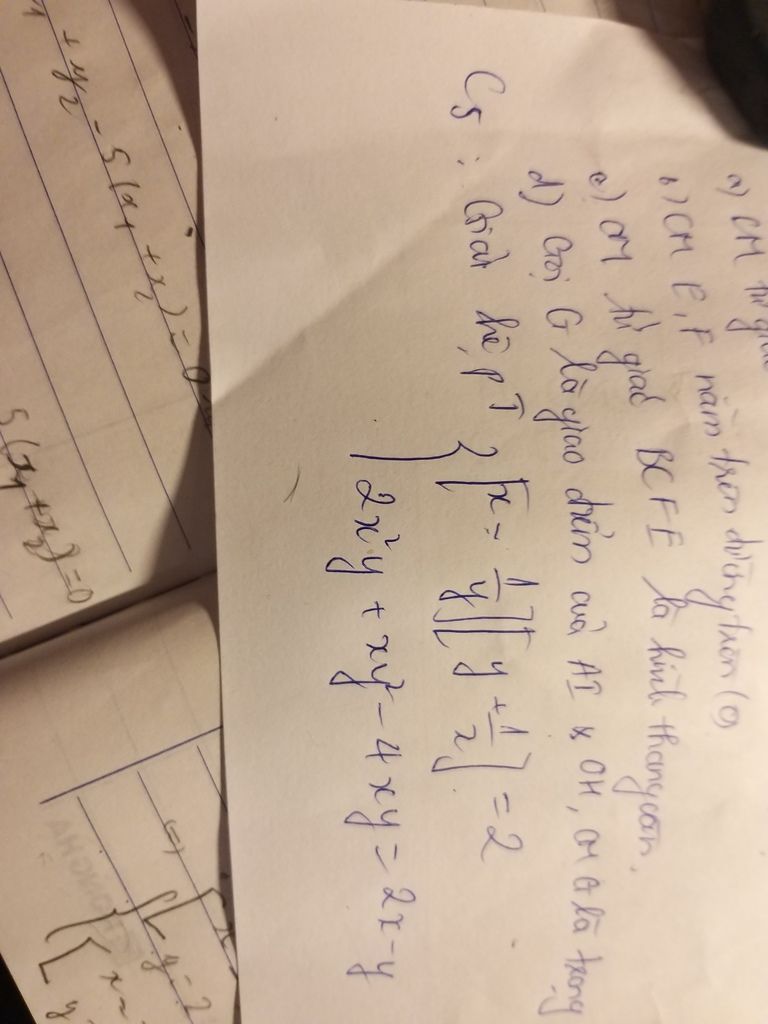 a) CM tứ giác
b) CM E, F nằm trên đường tròn (O)
c) CM tứ giác BCFE là hình thang cân.
d) Gọi G là giao điểm của AI & OH, CM G là trọng
C5: Giải hệ PT { [x - 1/y][y + 1/x] = 2
2x²y + xy² - 4xy = 2x - y
+ y2 - 5(x1 + x2) = 0
5(x1 + x2) = 0
(=)
y = 2
x =
y